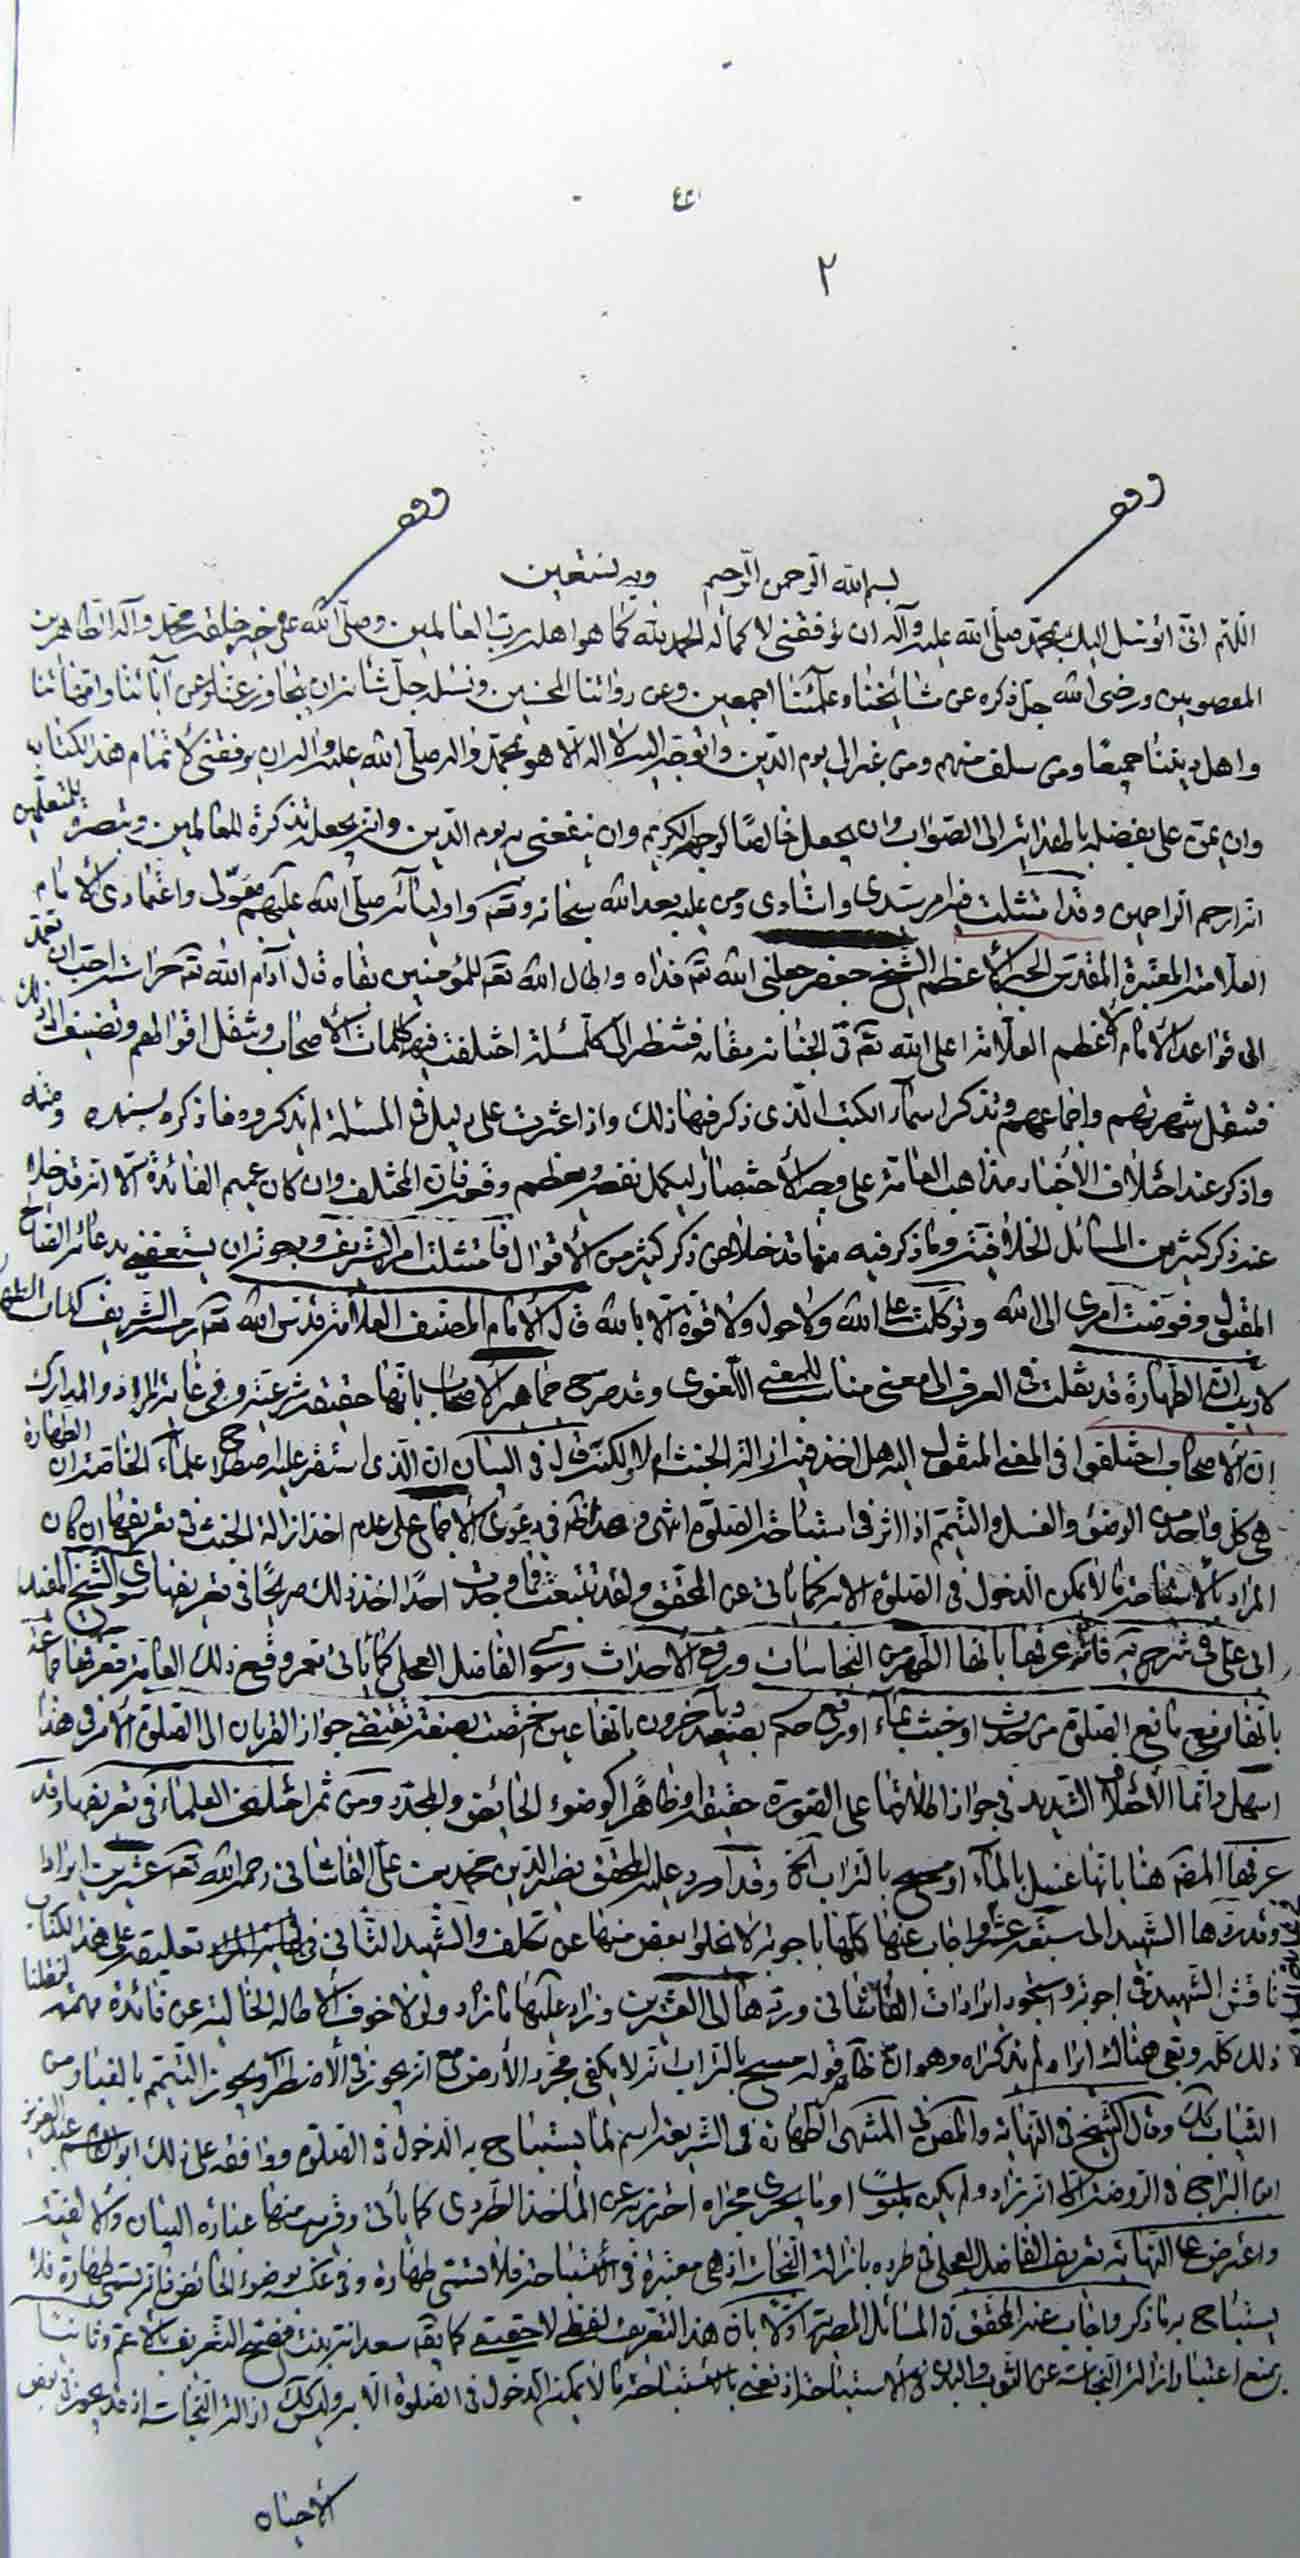 ٢
بسم الله الرحمن الرحيم وبه نستعين
اللهم انى اتوسل اليك بمحمد صلى الله عليه وآله ان توفقنى لاكماله الحمد لله كما هو اهله رب العالمين وصلى الله على خير خلقه محمد وآله الطاهرين
المعصومين ورضى الله جل ذكره عن مشائخنا وعلمائنا اجمعين وعن رواتنا المحسنين ونسئله جل شأنه ان يتجاوز عنا وعن آبائنا وامهاتنا
واهل ديننا جميعا ومن سلف منهم ومن غبر الى يوم الدين واتوجه اليه لا اله الا هو بمحمد وآله صلى الله عليه وآله ان يوفقنى لاتمام هذا الكتاب
وان يمن على بفضله بالهداية الى الصواب وان يجعله خالصا لوجهه الكريم وان ينفعنى به يوم الدين وان يجعله تذكرة للعالمين وتبصرة للمتعلمين
انه ارحم الراحمين وقد امتثلت فيه امر سيدى واستادى ومن عليه بعد الله سبحانه وتعه واوليائه صلى الله عليهم معولى واعتمادى الامام
العلامة المعتبر المقدس الحبر الاعظم الشيخ جعفر جعلنى الله تعه فداه واطال الله تعه للمؤمنين بقاه قال ادام الله تعه حراسته احب ان تعمد
الى قواعد الامام الاعظم العلامة اعلى الله تعه فى الجنان مقامه فتنظر الى كل مسئلة اختلفت فيها كلمات الاصحاب وتنقل اقوالهم وتضيف الى ذلك
نقل شهرتهم واجماعهم وتذكر اسماء الكتب الذى ذكر فيها ذلك واذا عثرت على دليل فى المسئلة لم يذكروه فاذكره
واذكر عند اختلاف الاخبار مذاهب العامة على وجه الاختصار ليكمل نفعه ويعظم وقعه فان المختلف وان كان عميم الفائدة الا انه قد خلا
عن ذكر كثير من المسائل الخلافية وما ذكر فيه منها قد خلا عن ذكر كثير من الاقوال فامتثلت امره الشريف ويجوز ان يسعفنى بدعائه الصالح
المقبول وفوضت امرى الى الله وتوكلت على الله ولا حول ولا قوة الا بالله قال الامام المصنف العلامة قدس الله تعه رمسه الشريف كتاب الطهارة
لا ريب ان الطهارة قد نقلت فى العرف الى معنى مناسب للمعنى اللغوى وقد صرح جماهير الاصحاب بانها حقيقة شرعية وفى غاية المراد والمدارك
ان الاصحاب اختلفوا فى المعنى المنقول اليه هل اخذ فيه ازالة الخبث ام لا ولكنه قال فى البيان ان الذى استقر عليه اصطلاح علماء الخاصة ان الطهارة
هى كل واحد من الوضوء والغسل والتيمم اذا اثر فى استباحة الصلوة انتهى وهو ظاهر فى دعوى الاجماع على عدم اخذ ازالة الخبث فى تعريفها ان كان
المراد بالاستباحة ما لا يمكن الدخول فى الصلوة الا به كما يأتى عن المحقق ولقد تتبعت فما وجدت احدا اخذ ذلك صريحا فى تعريفها سوى الشيخ المفيد
ابى على فى شرح فانه عرفها بانها التطهر من النجاسات ورفع الاحداث وسوى الفاضل العجلى كما يأتى نعم وقع ذلك للعامة فعرفها جماعة
بانها رفع مانع الصلوة من حدث او خبث بماء او رفع حكمه بصعيد وآخرون بانها عين اختصت بصفة تقتضى جواز القربان الى الصلوة والامر فى هذا
سهل وانما الاختلاف الشديد فى جواز اطلاقها على الصورة حقيقة او ظاهرا كوضوء الحائض والمجدد ومن ثم اختلف العلماء فى تعريفها وقد
عرفها المصه هنا بانها غسل بالماء او مسح بالتراب الخ وقد اورد عليه المحقق نصير الدين محمد بن على القاشانى رحمه الله تعه عشرين ايرادا
وقد ردها الشهيد الى سبعة عشر واجاب عنها كلها باجوبة لا يخلو بعض منها عن تكلف والشهيد الثانى فى تعليقه على هذا الكتاب
ناقش الشهيد فى اجوبته وايرادات القاشانى وردها الى العشرين وزاد عليها ما زاد ولولا خوف الاطالة الخالية عن فائدة مهمة لنقلنا
ذلك كله وبقى هناك ايراد لم يذكراه وهو ان ظاهر قوله مسح بالتراب انه لا يكفى مجرد الارض مع انه يجوز فى الاضطرار ويجوز التيمم بالغبار ومن
الثياب كك وقال الشيخ فى النهاية والمصه فى المنتهى الطهارة فى الشريعة اسم لما يستباح به الدخول فى الصلوة ووافقه على ذلك ابو القسم عبد العزيز
ابن البراج فى الروضة الا انه زاد ولم يكن ملبوسا او ما يجرى مجراه احترز به عن المأخذ الطردى كما يأتى وقريب منها عبارة البيان والالفية
واعترض على النهاية تعريف الفاضل العجلى فى طرده بازالة النجاسة اذ هى معتبرة فى الاستباحة فلا تسمى طهارة وفى عكسه بوضوء الحائض فانه يسمى طهارة فلا
يستباح به ما ذكر واجاب عنه المحقق فى المسائل المصرية اولا بان هذا التعريف لفظى لا حقيقى كما يقه سعدانة نبت فيصح التعريف بالاعم وثانيا
بمنع اعتبار ازالة النجاسة عن الثوب والبدن فى الاستباحة اذ نعنى بالاستباحة ما لا يمكنه الدخول فى الصلوة الا به وليس كك ازالة النجاسة اذ قد يجوز فى بعض
الاحيان